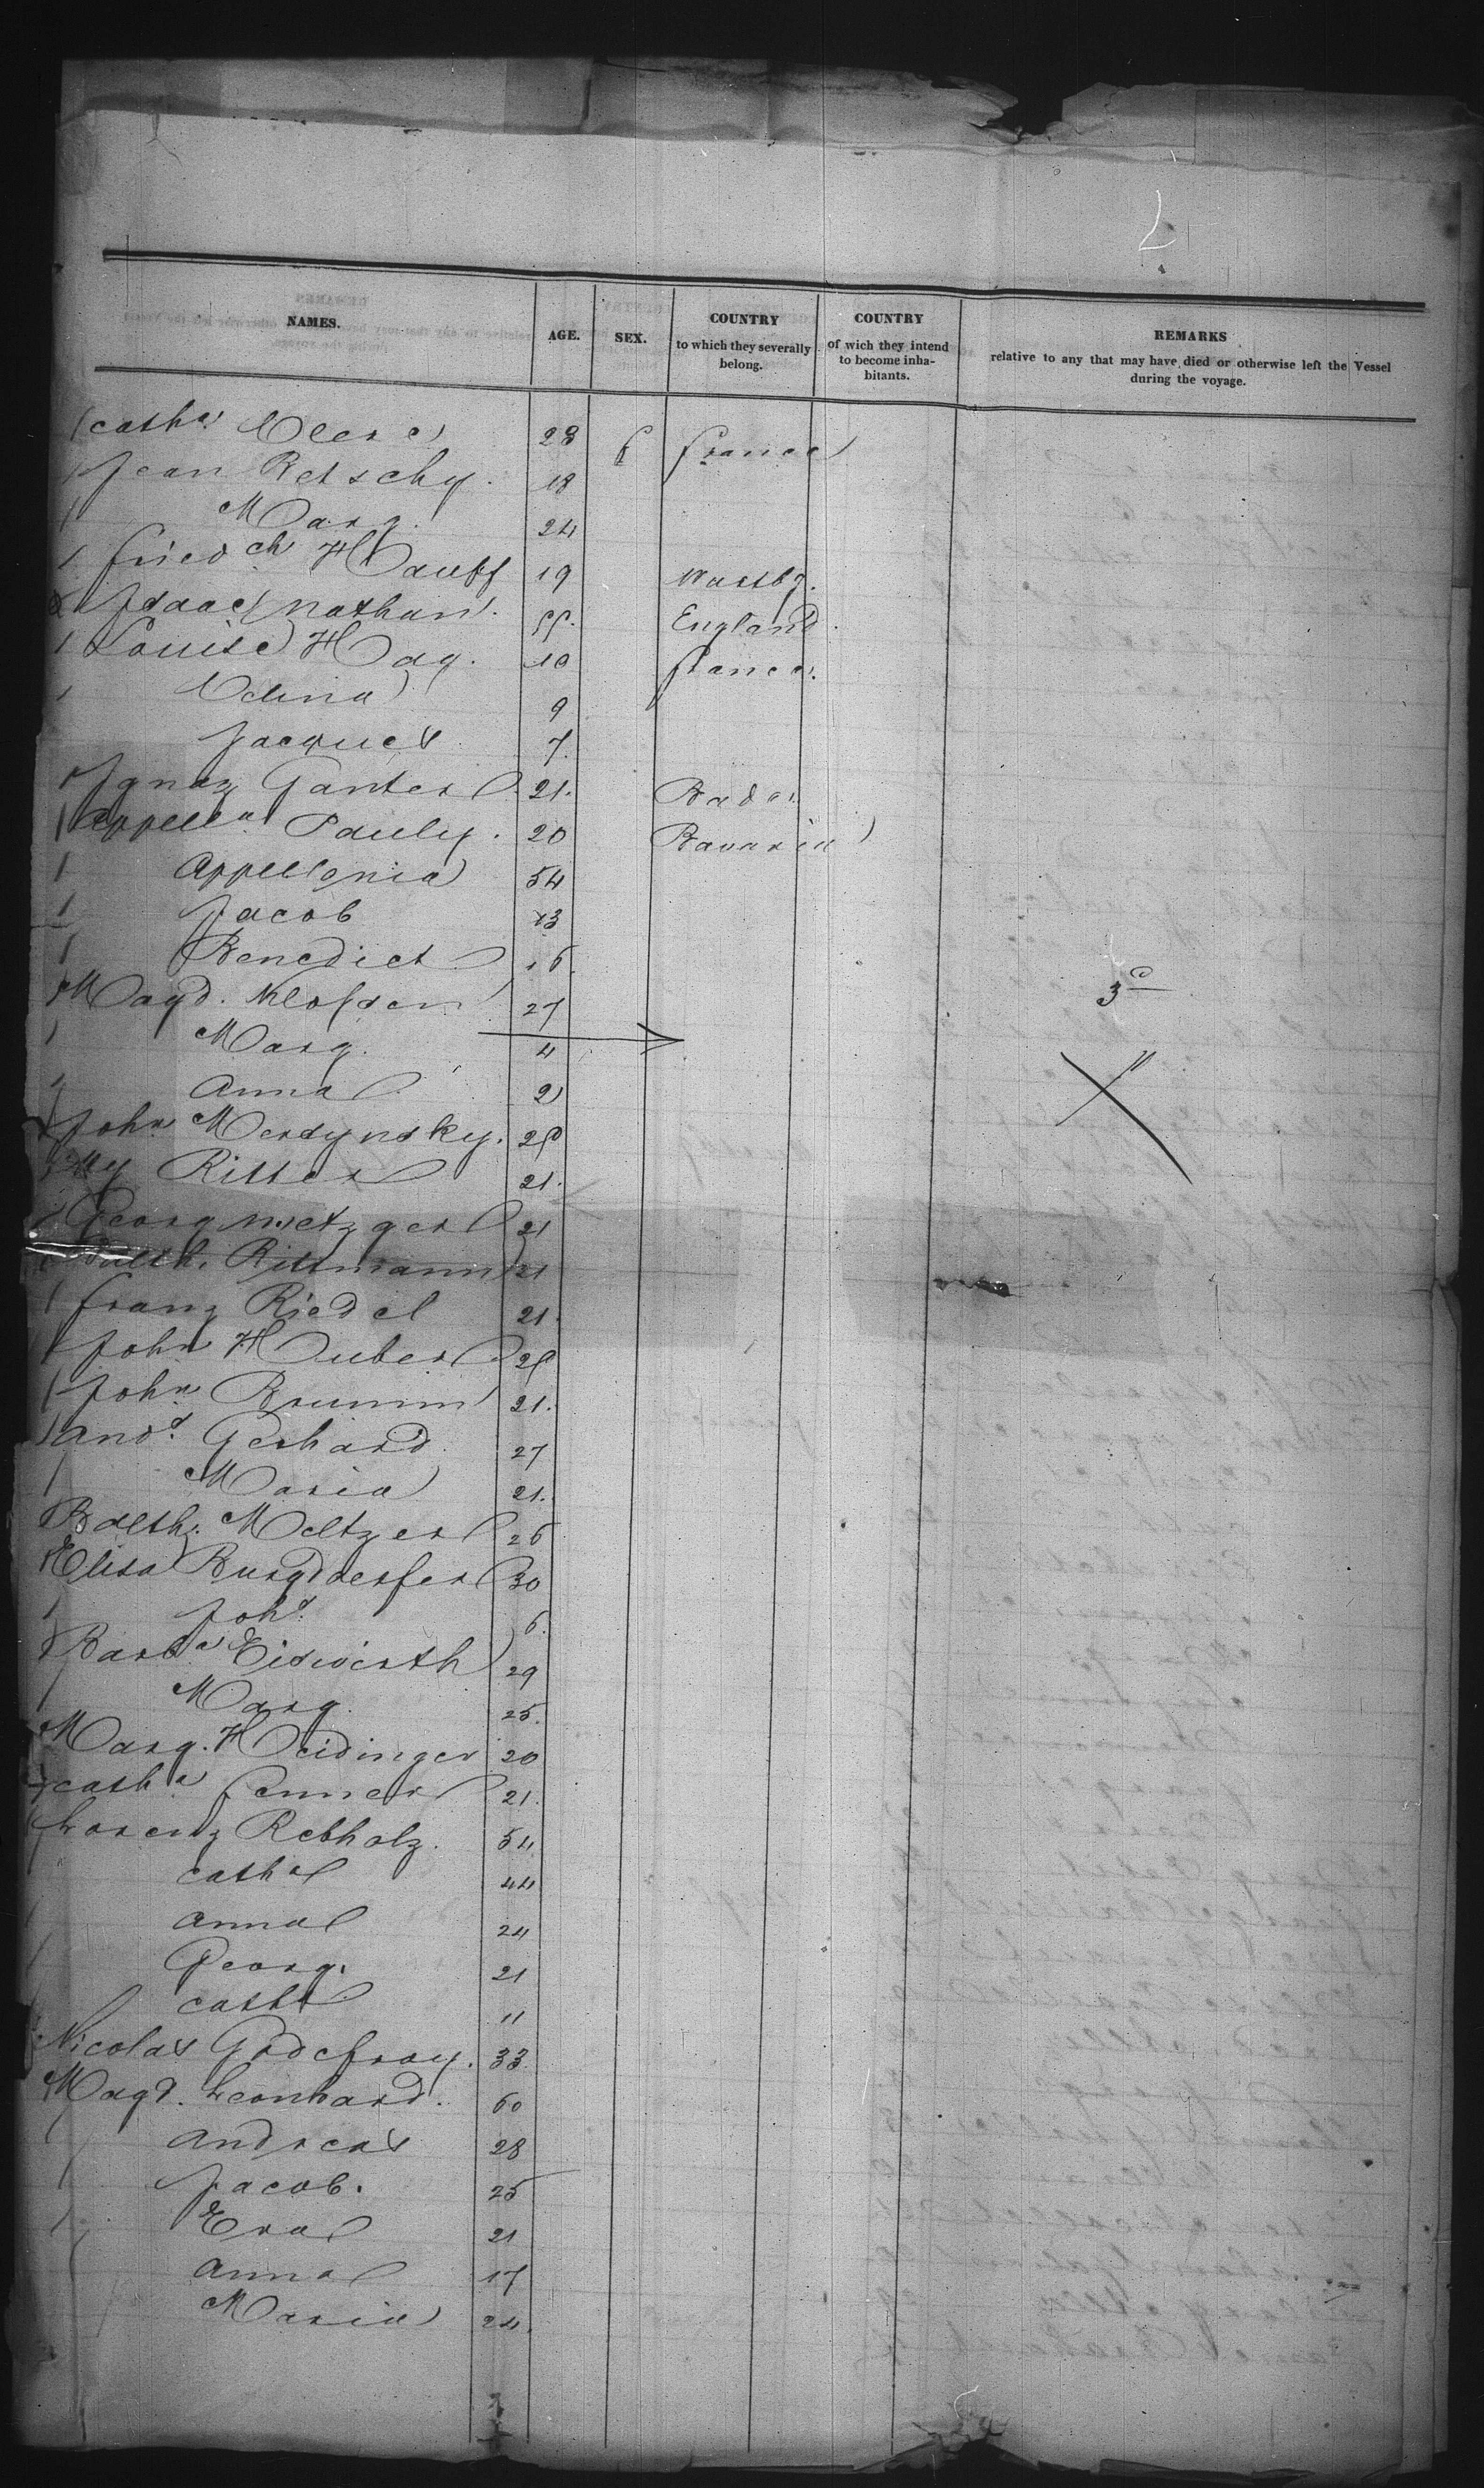 NAMES. AGE. SEX. COUNTRY to which they severally belong. COUNTRY of wich they intend to become inhabitants. REMARKS relative to any that may have died or otherwise left the Vessel during the voyage.
Cath.a 28 f France
Jean Retschy. 18
Marg. 24
Fried.ch Hauff 19 Wurtbg.
Isaac Nathan. England
Louise Hag. 10 France.
9
Jacques 7.
Ignaz Ganter 21. Baden
Appell.a Pauly. 20 Bavaria
Appellonia 54
Jacob 13
Benedict 16.
Magd. 27
Marg. 4
Anna 2
John 
Ritter 21.
Georg Metzger 21
Balth. Rittmann 21
Franz Riedel 21.
John Huber
John Brumm 21.
And.s Gerhard 27
Maria 21.
Balth. Meltzer 26
Elisa Burgdoerfer 30
Joh.s 6.
Barb.a Eiswirth 29
Marg. 25.
Marg. Heidinger 20
Cath.a Fenner 21.
Lorenz Rebholz. 54
Cath.a 44
Anna 24
Georg. 21
Cath. 11
Nicolas Godefroy. 33
Magd. Leonhard. 60
Andreas 28
Jacob. 25
Eva 21
Anna 17
Maria 24.